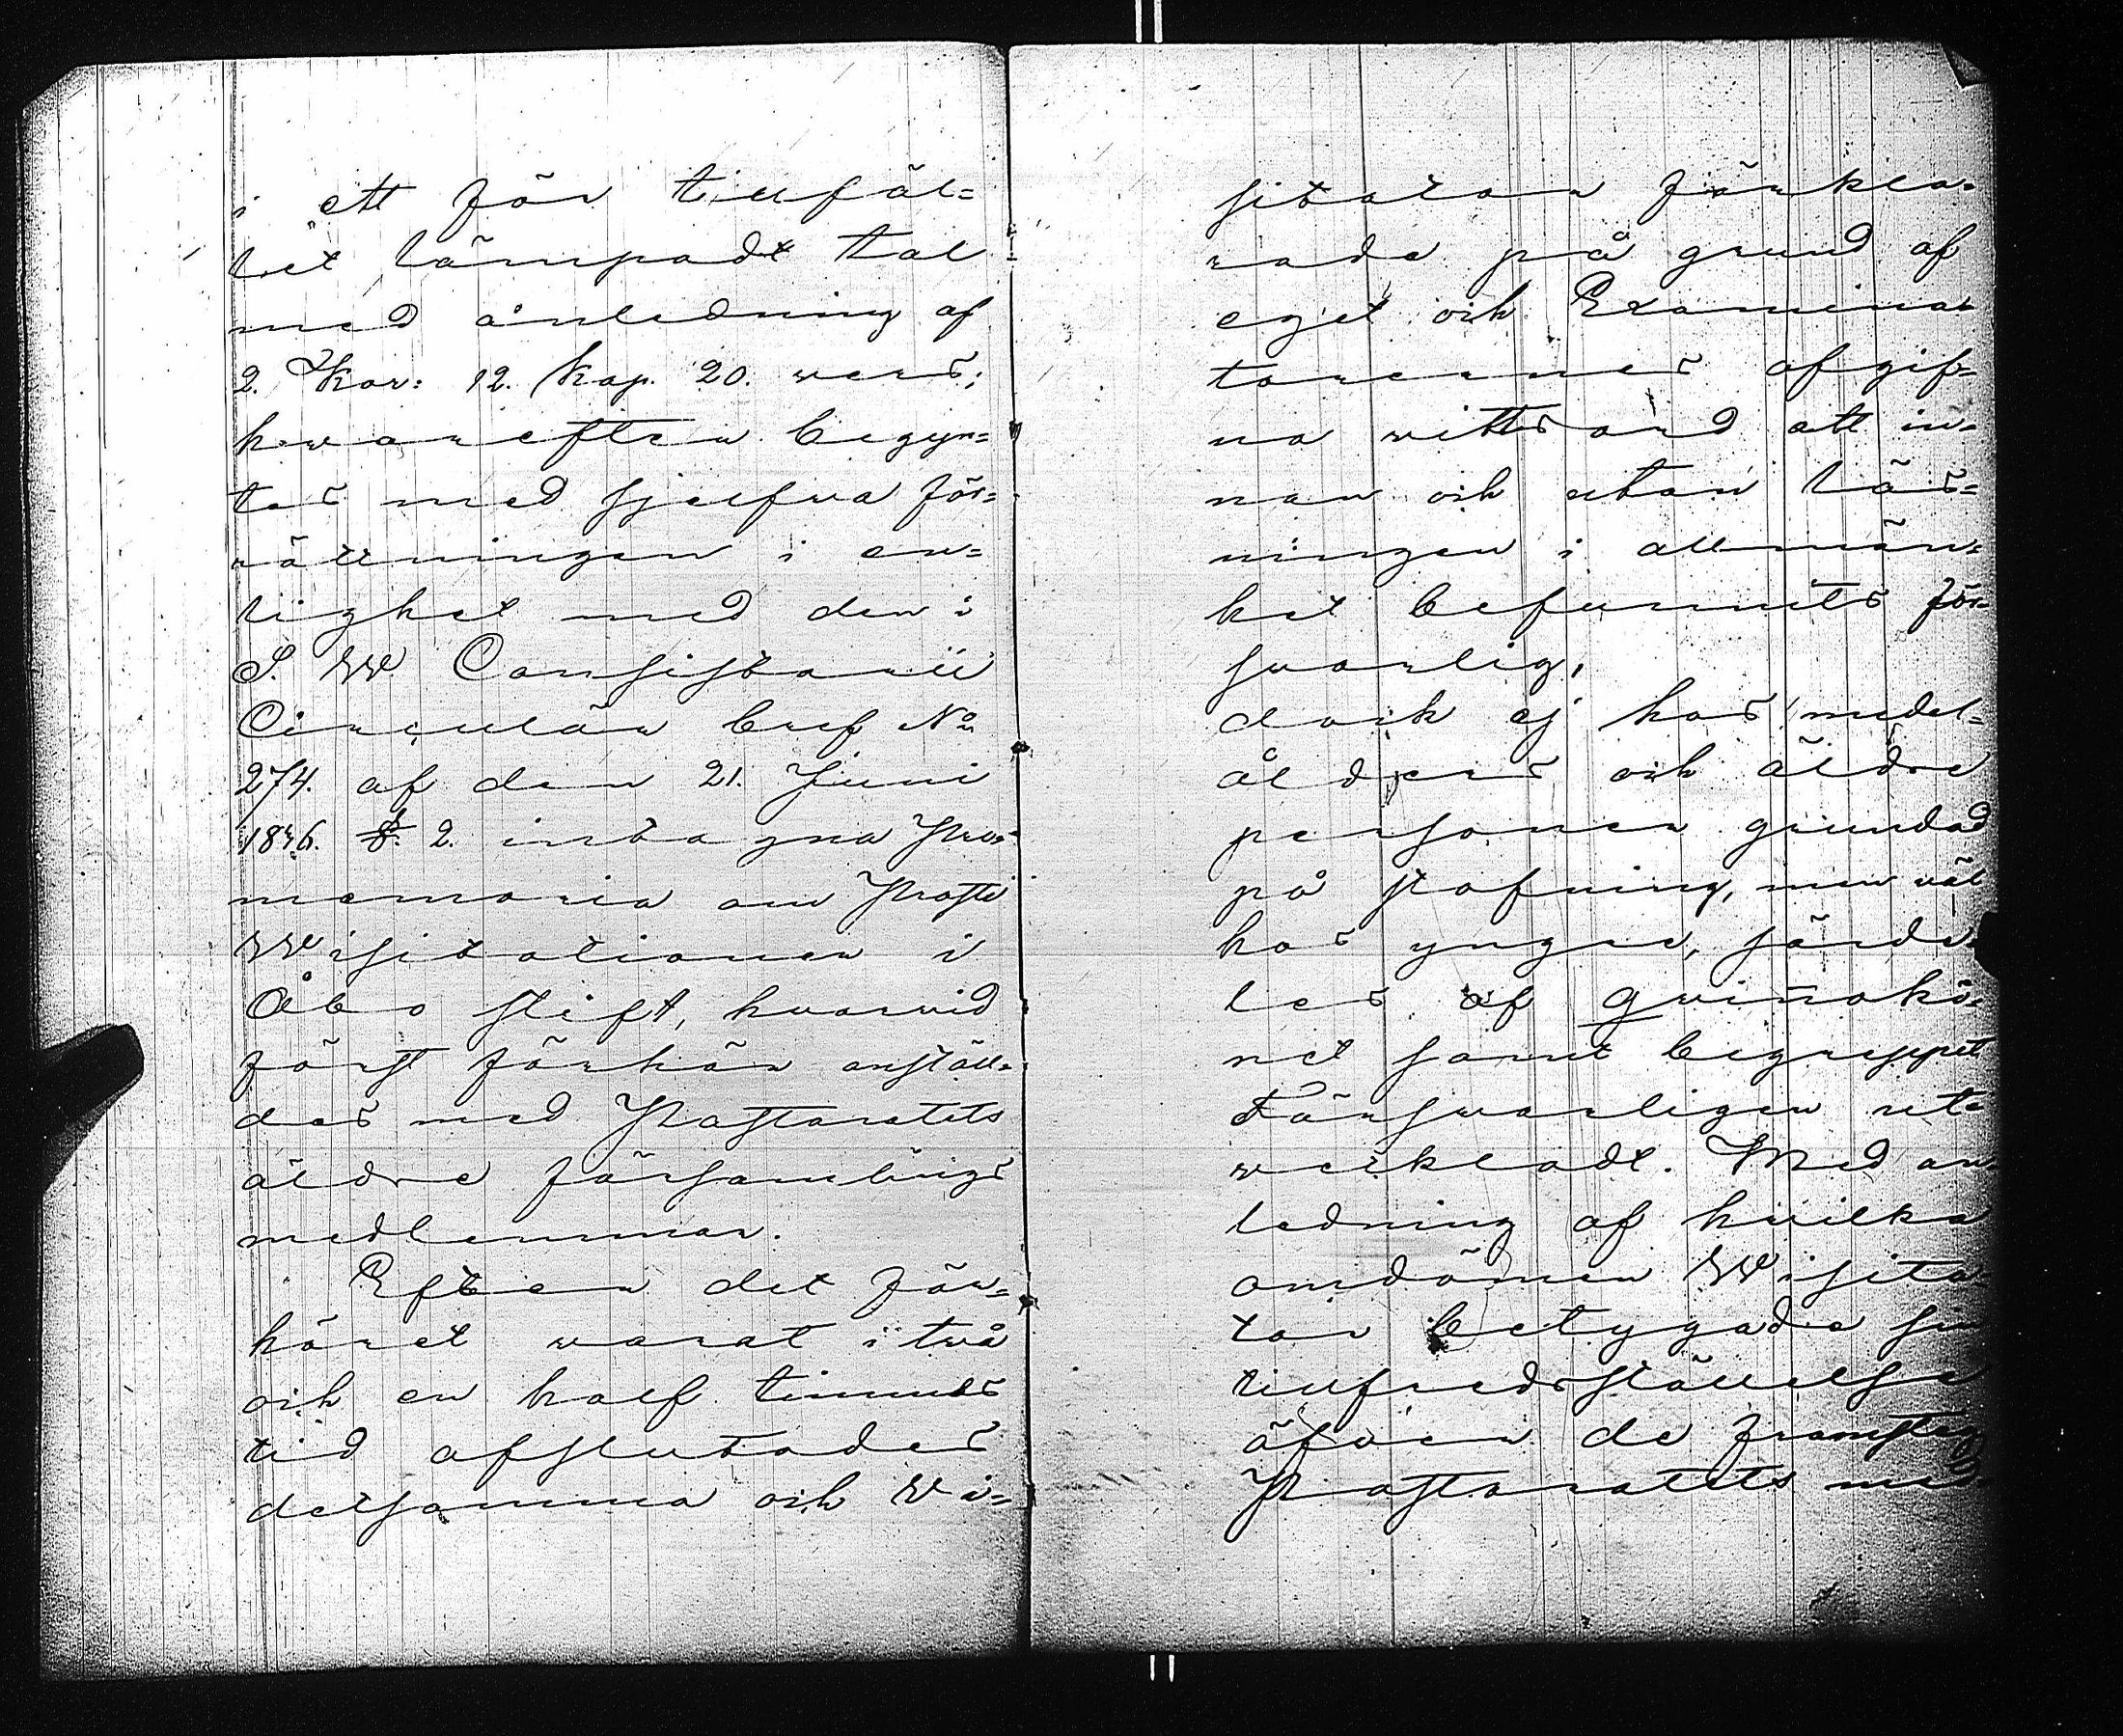 i ett för tillfäl=
let lämpadt tal
med anledning af
2. Kor: 12. Kap. 20. vers;
hwarefter begyn=
tes med sjelfva för=
rättningen i en=
lighet med den i
S. W. Consistorii
Circulär bref No
274. af den 21. Juni
1836. §. 2. intagna Pro=
memoria om Prosti
Wisitationer i
Åbo stift, hvarvid
först förhör anställ=
des med Pastoratets
äldre församlings
medlemmar.
Efter det för=
höret warat i två
och en half timmes
tid afslutades
detsamma och Wi=
sitator förkla=
rade på grund af
eget och Examina=
torernes afgif=
na wittsord att in=
nan och utan läs=
ningen i allmän=
het befunnits för=
svarlig,
dock ej hos medel=
ålders och äldre
personer grundad
på stafning, men väl
hos yngre, särde=
les af qwinokö=
net samt begreppet
Försvarligen ut=
weckladt. Med an=
ledning af hvilka
omdömen Wisita=
tor betygade sin
tillfredsställelse
äfwen de framsteg
Pastoratets med=